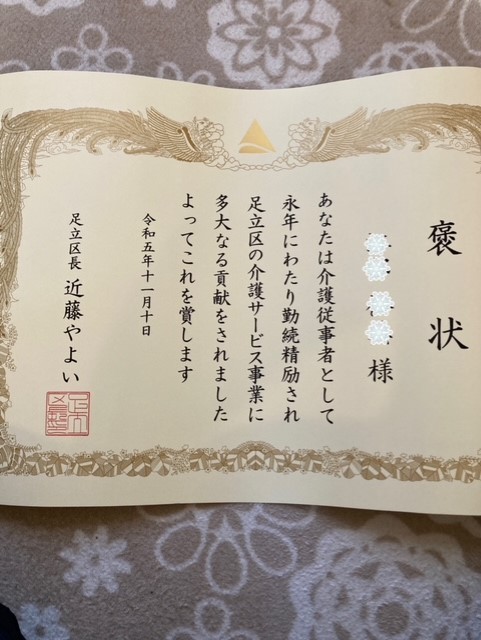 褒状
様
あなたは介護従事者として
永年にわたり勤続精励され
足立区の介護サービス事業に
多大なる貢献をされました
よってこれを賞します
令和五年十一月十日
足立区長 近藤やよい